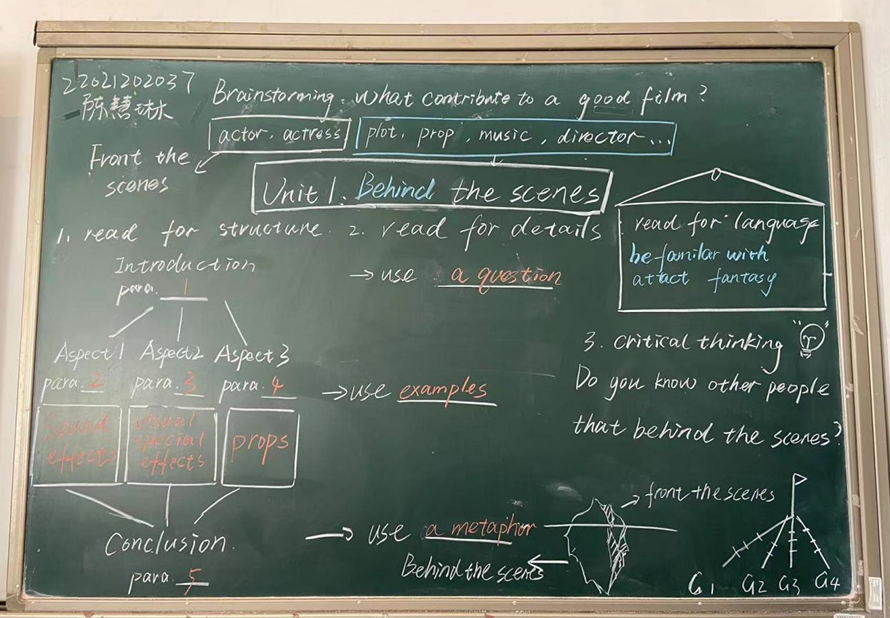 22021202037
陈慧琳
Brainstorming: What contribute to a good film?
actor, actress
plot, prop, music, director...
Front the
scenes
Unit 1. Behind the scenes
1. read for structure.
Introduction
para. 1
Aspect 1
Aspect 2
Aspect 3
para. 2
para. 3
para. 4
sound
effects
visual
special
effects
props
Conclusion.
para. 5
2. read for details
→ use a question
→ use examples
→ use a metaphor
front the scenes
Behind the scenes
read for language
be familar with
attact fantasy
3. Critical thinking
Do you know other people
that behind the scenes?
G1 G2 G3 G4